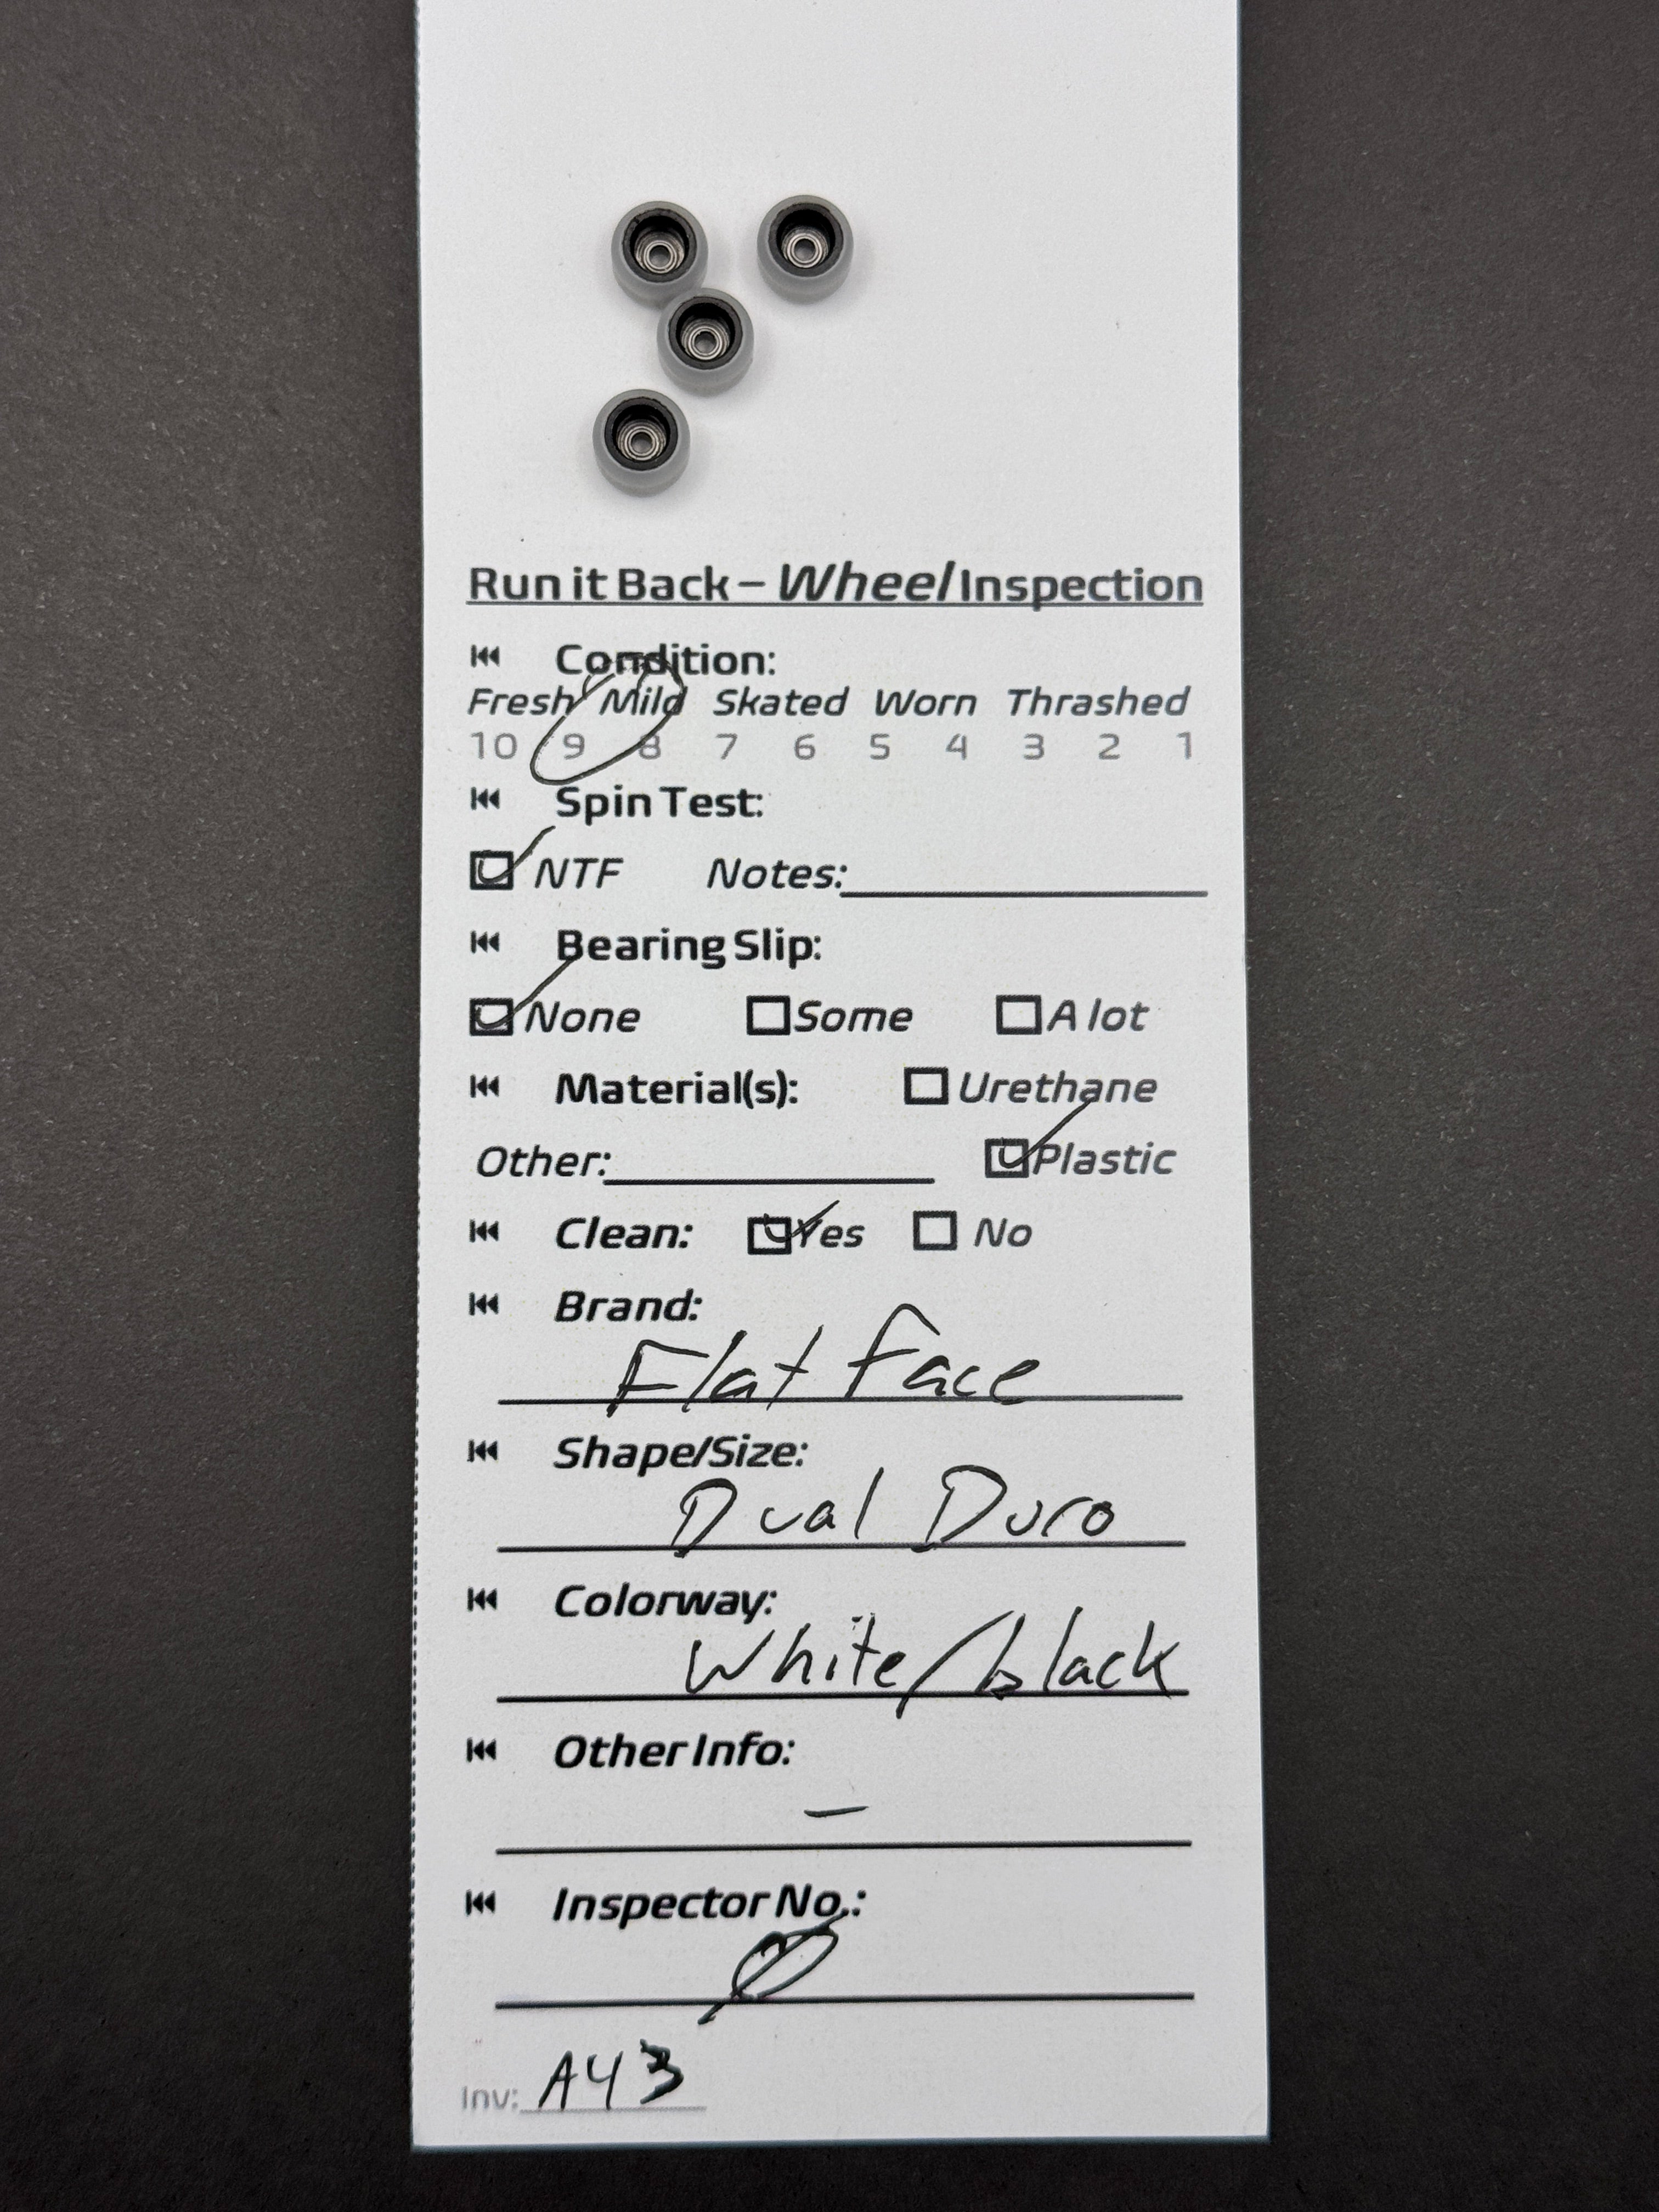 Run it Back – Wheel Inspection
Condition:
Fresh Mild Skated Worn Thrashed
10 9 8 7 6 5 4 3 2 1
Spin Test:
NTF Notes:
Bearing Slip:
None Some A lot
Material(s): Urethane
Other: Plastic
Clean: Yes No
Brand:
Flat face
Shape/Size:
Dual Duro
Colorway:
White/black
Other Info:
–
Inspector No.:
Ø
Inv: A43